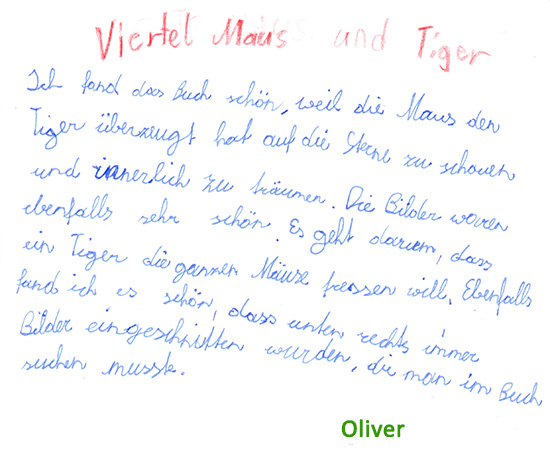 Viertel Maus und Tiger
Ich fand das Buch schön, weil die Maus den
Tiger überzeugt hat auf die Sterne zu schauen
und innerlich zu träumen. Die Bilder waren
ebenfalls sehr schön. Es geht darum, dass
ein Tiger die ganzen Mäuse fressen will. Ebenfalls
fand ich es schön, dass unten rechts immer
Bilder eingeschnitten wurden, die man im Buch
suchen musste.
Oliver